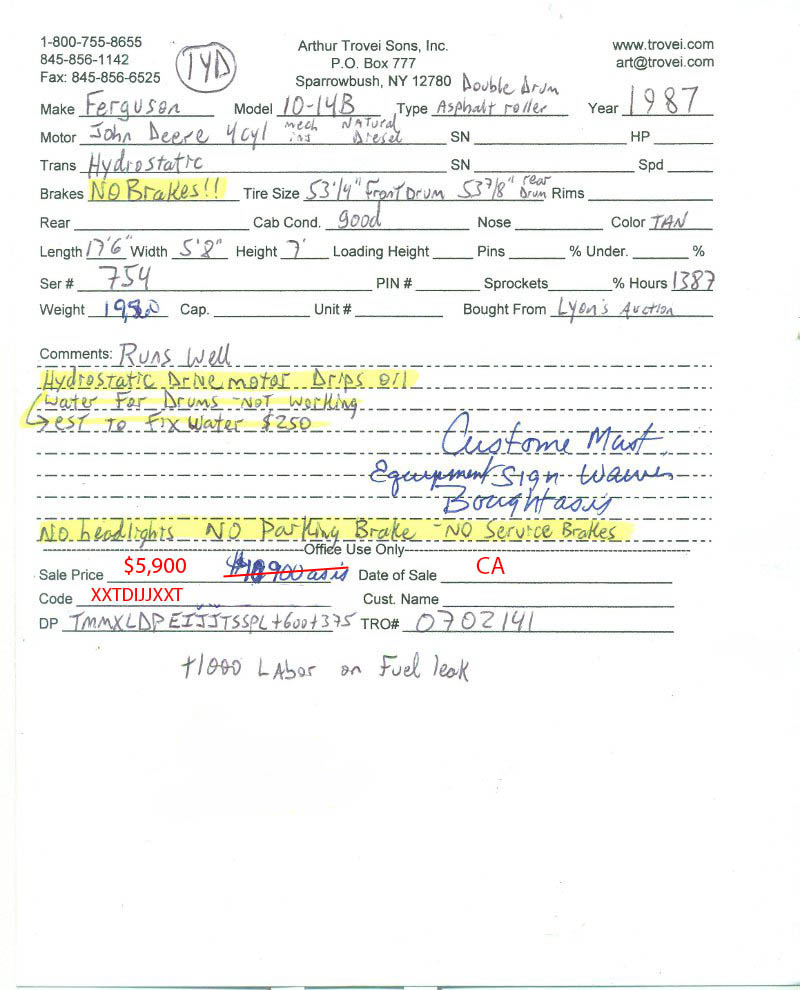 1-800-755-8655
845-856-1142
Fax: 845-856-6525
TYD
Arthur Trovei Sons, Inc.
P.O. Box 777
Sparrowbush, NY 12780
www.trovei.com
art@trovei.com
Double Drum
Make Ferguson Model 10-14B Type Asphalt roller Year 1987
Motor John Deere 4cyl mech inj Natural Diesel SN HP
Trans Hydrostatic SN Spd
Brakes NO Brakes!! Tire Size 53 1/4" Front Drum 53 7/8" rear Drum Rims
Rear Cab Cond. good Nose Color TAN
Length 17'6" Width 5'8" Height 7' Loading Height Pins % Under. %
Ser # 754 PIN # Sprockets % Hours 1387
Weight Cap. Unit # Bought From Lyon's Auction
Comments: Runs Well
Hydrostatic Drive motor Drips oil
Water For Drums - Not Working
→ EST to Fix Water $250
Custome Must
Equipment Sign Waver
Bought as is
NO headlights NO Parking Brake - NO Service Brakes
Office Use Only
Sale Price $5,900 as is Date of Sale CA
Code XXTDIJJXXT Cust. Name
DP TMMXLDPEIJJTSSPL +600+375 TRO# 0702141
+1000 Labor on Fuel leak